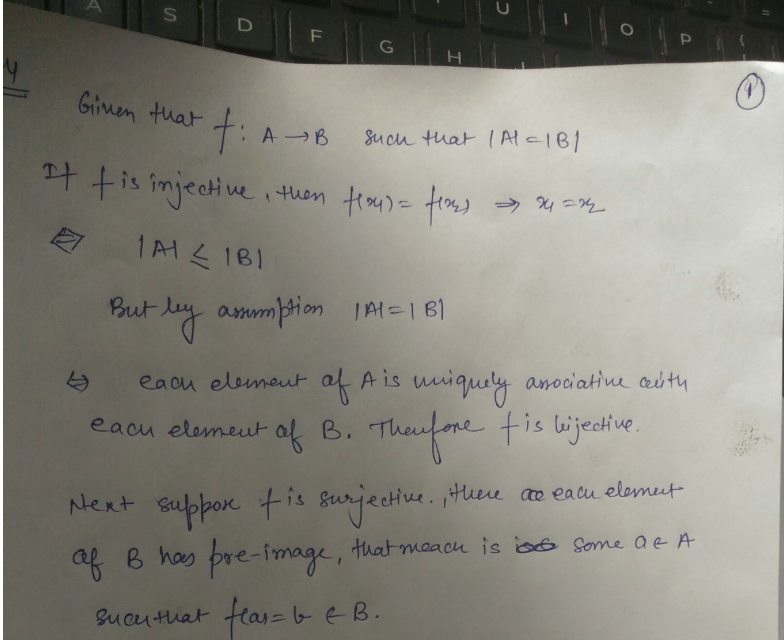 A S D F G H U I O P {
4
1
Given that f: A → B such that |A| = |B|
If f is injective, then f(x1) = f(x2) ⇒ x1 = x2
⇔ |A| ≤ |B|
But by assumption |A| = |B|
⇔ each element of A is uniquely associative with
each element of B. Therefore f is bijective.
Next suppose f is surjective., there each element
of B has pre-image, that meach is some a ∈ A
such that f(a) = b ∈ B.